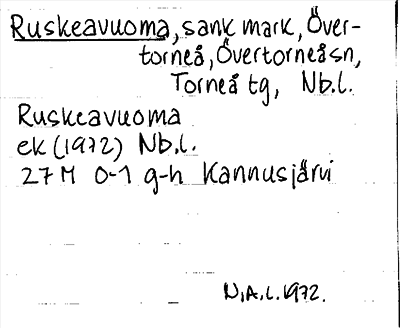 Ruskeavuoma, sank mark, Över-
torneå, Övertorneå sn,
Torneå tg, Nb.l.
Ruskeavuoma
ek (1972) Nb.l.
27 M 0-1 g-h Kannusjärvi
N.A.L. 1972.